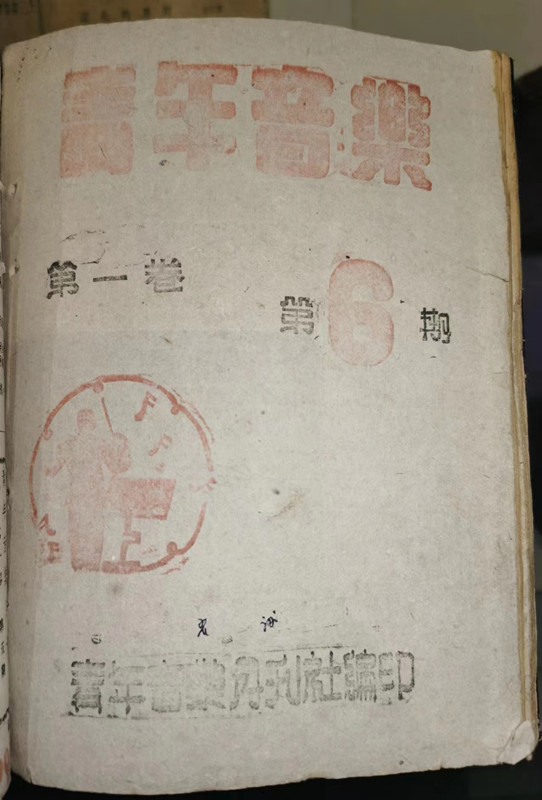 青年音樂
第一卷
第6期
青年音樂月刊社編印